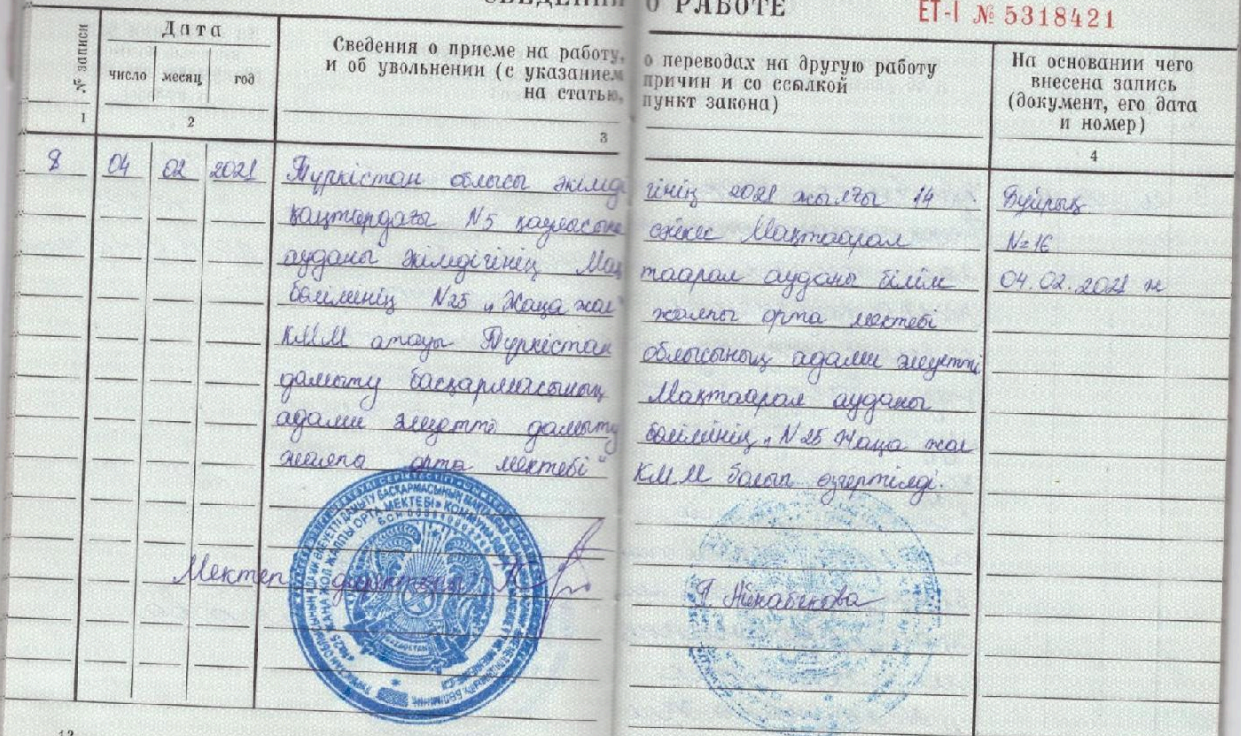 СВЕДЕНИЯ О РАБОТЕ
ЕТ-I № 5318421
№ записи
Дата
число месяц год
Сведения о приеме на работу, о переводах на другую работу
и об увольнении (с указанием причин и со ссылкой
на статью, пункт закона)
На основании чего
внесена запись
(документ, его дата
и номер)
1 2 3 4
8 04 02 2021 Түркістан облысы әкімдігінің 2021 жылғы 14 Бұйрық
қаңтардағы N5 қаулысына сәйкес Мақтаарал №16
ауданы әкімдігінің Мақтаарал ауданы білім 04.02.2021 ж
бөлімінің N25 „Жаңа жол" жалпы орта мектебі
КММ атауы Түркістан облысының адами әлеуетті
дамыту басқармасының Мақтаарал ауданы
адами әлеуетті дамыту бөлімінің „N25 Жаңа жол
жалпы орта мектебі" КММ болып өзгертілді.
Мектеп директоры
12